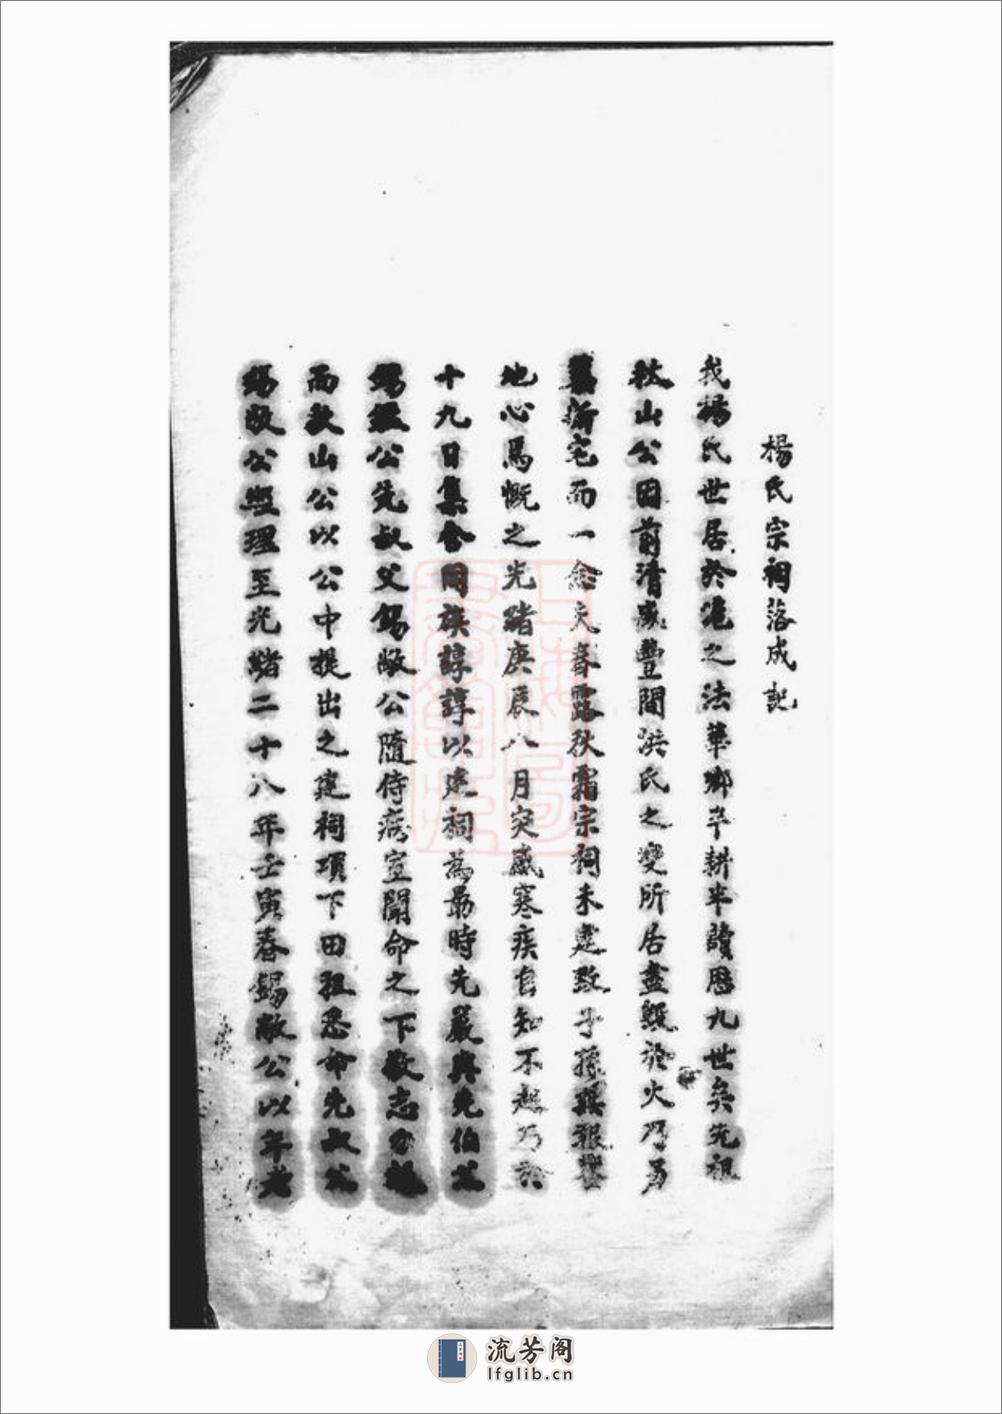 楊氏宗祠落成記
我楊氏世居於淞之法華鄉半耕半讀歷九世矣先祖
秋山公因前清咸豐間洪氏之變所居盡毀於火乃另
舊新宅而一念夫春露秋霜宗祠未建致子孫報
地心焉慨之光緒庚辰八月突感寒疾自知不起乃於
十九日集合同族諄諄以建祠為勗時先嚴與先伯父
錫經公先叔父錫敝公隨侍病室聞命之下敬志勿
而秋山公以公中提出之建祠項下田租悉命先叔父
錫敝公經理至光緒二十八年壬寅春錫敝公以年老
流芳阁
lfglib.cn